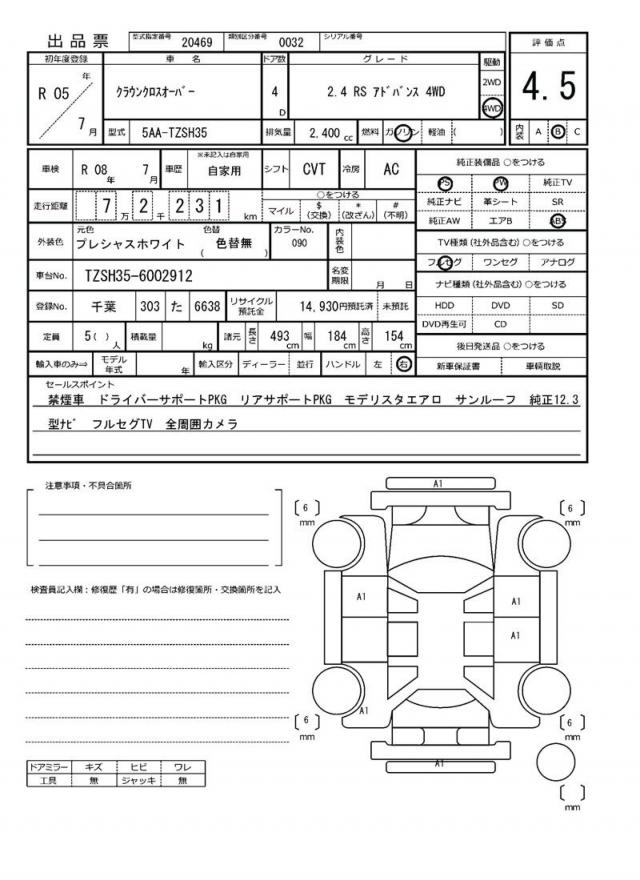 出品票 型式指定番号 20469 類別区分番号 0032 シリアル番号
初年度登録 車 名 ドア数 グレード 駆動 評価点
R 05 年 7月 クラウンクロスオーバー 4 D 2.4 RS アドバンス 4WD 2WD 4WD 4.5
型式 5AA-TZSH35 排気量 2,400 cc 燃料 ガソリン 軽油 ( ) 内装 A B C
車検 R 08 年 7 月 車歴 ※未記入は自家用 自家用 シフト CVT 冷房 AC 純正装備品 ○をつける
PS PW 純正TV
走行距離 7 万 2 千 2 3 1 km ○をつける
マイル $(交換) *(改ざん) #(不明)
純正ナビ 革シート SR
純正AW エアB ABS
外装色 元色 プレシャスホワイト 色替 ( 色替無 ) カラーNo. 090 内装色
TV種類 (社外品含む) ○をつける
フルセグ ワンセグ アナログ
車台No. TZSH35-6002912 名変期限 月 日
ナビ種類 (社外品含む) ○をつける
登録No. 千葉 303 た 6638 リサイクル預託金 14,930円預託済 未預託
HDD DVD SD
DVD再生可 CD
定員 5( ) 人 積載量 kg 諸元 長さ 493 cm 幅 184 cm 高さ 154 cm
後日発送品 ○をつける
輸入車のみ⇒ モデル年式 年 輸入区分 ディーラー 並行 ハンドル 左 右
新車保証書 車輌取説
セールスポイント
禁煙車 ドライバーサポートPKG リアサポートPKG モデリスタエアロ サンルーフ 純正12.3
型ナビ フルセグTV 全周囲カメラ
注意事項・不具合箇所
A1
[ 6 ] mm [ 6 ] mm
検査員記入欄：修復歴「有」の場合は修復箇所・交換箇所を記入
A1 A1
A1
A1
[ 6 ] mm [ 6 ] mm
A1
ドアミラー キズ ヒビ ワレ
工具 無 ジャッキ 無
[ ] mm